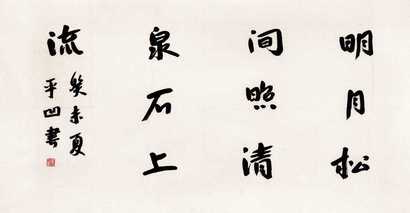 明月松
间照清
泉石上
流
癸未夏
平凹书